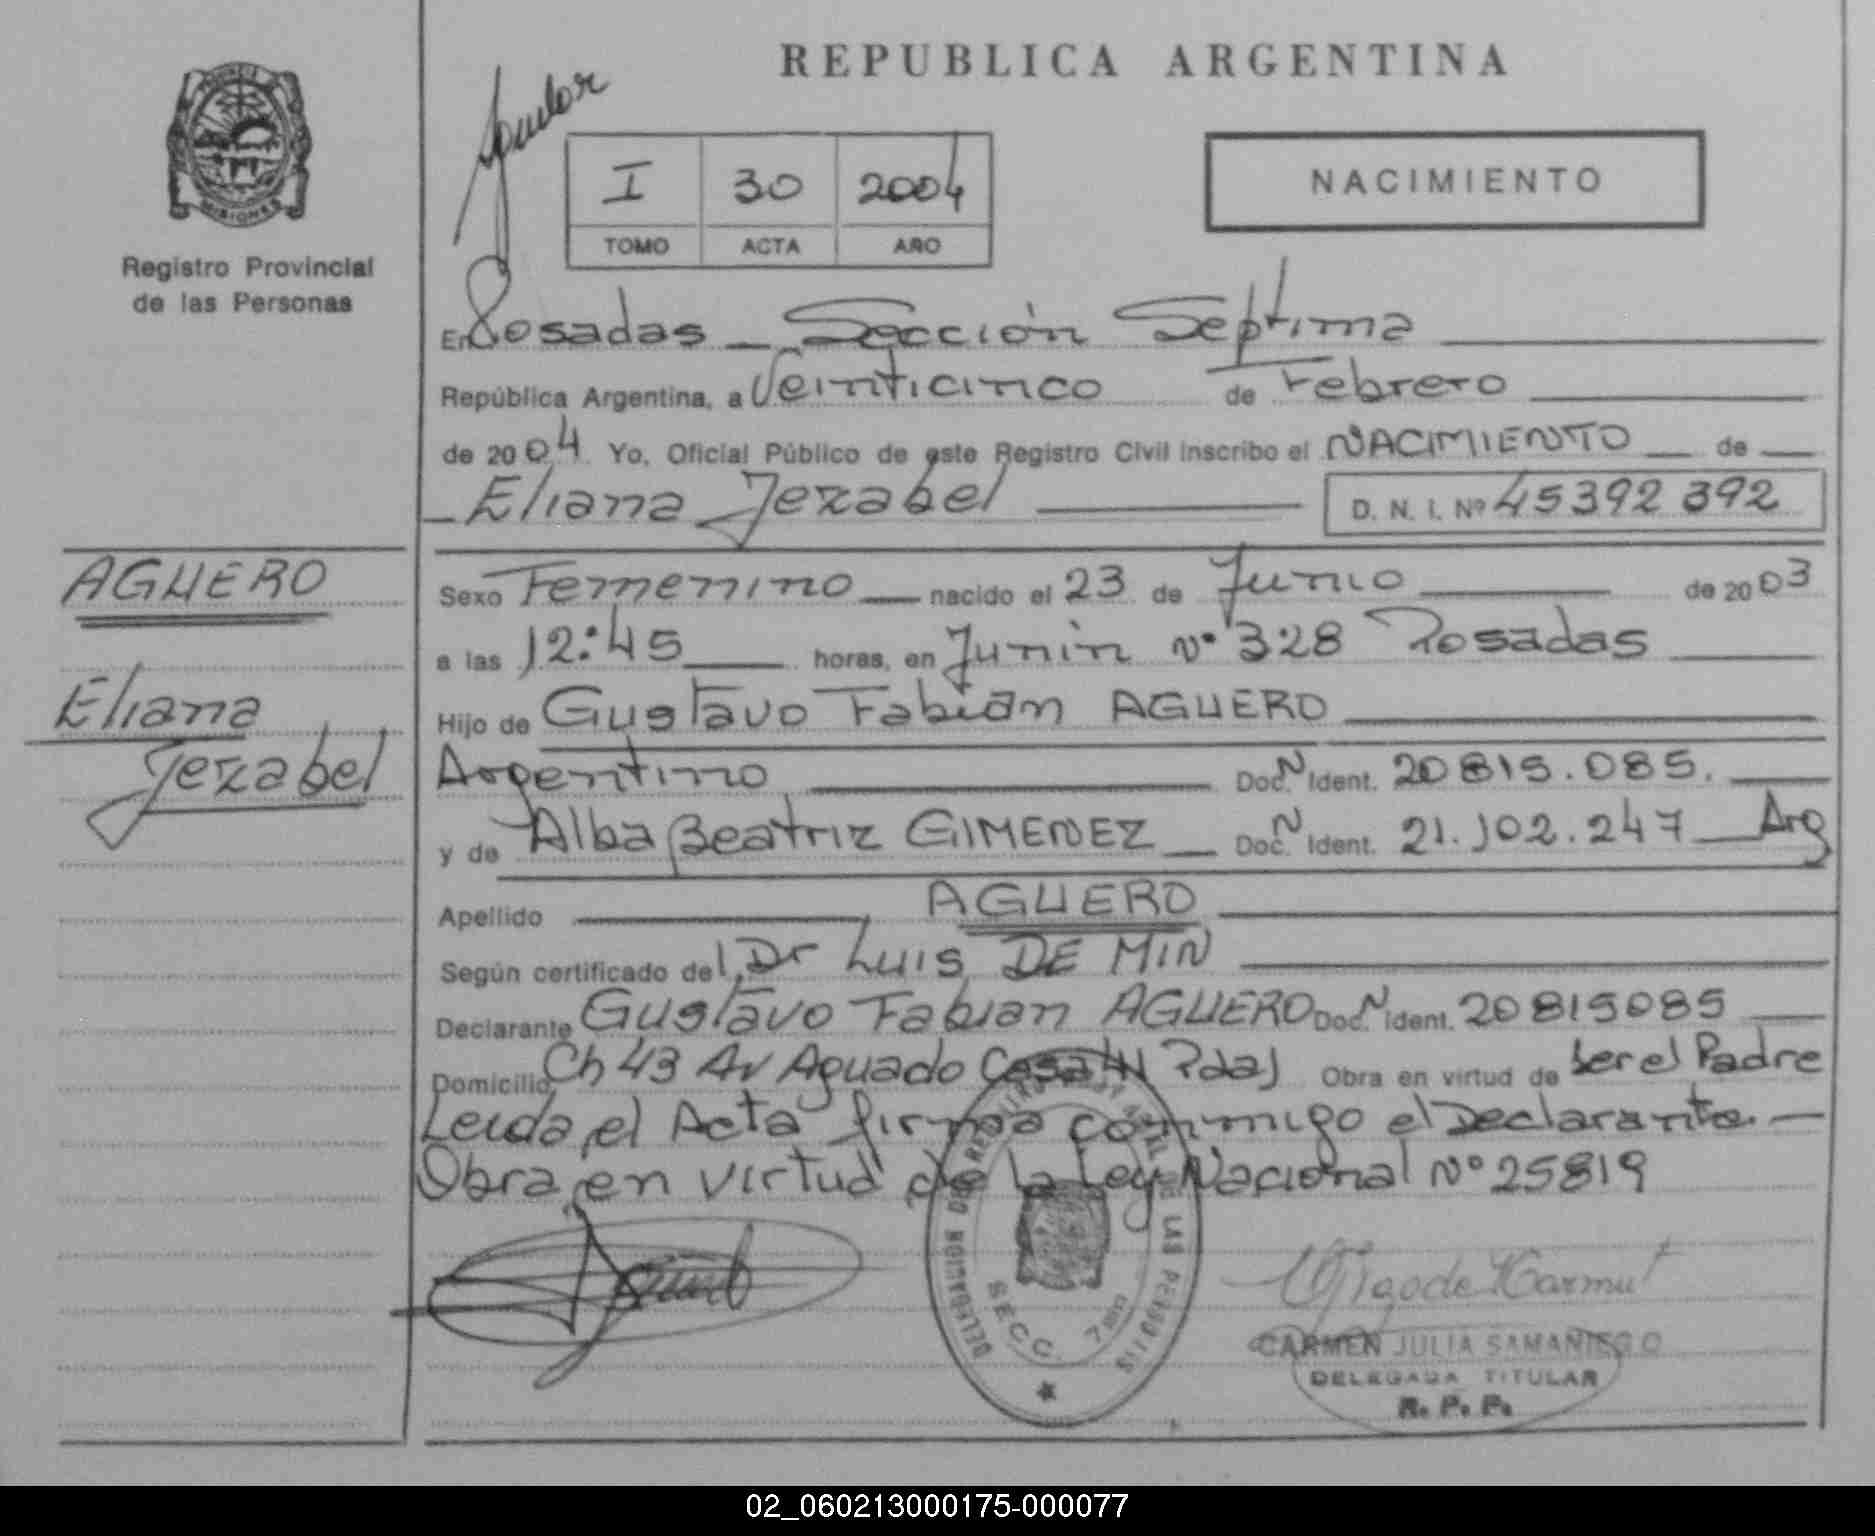 REPUBLICA ARGENTINA
I 30 2004
TOMO ACTA AÑO
NACIMIENTO
MISIONES
Registro Provincial
de las Personas
En Posadas - Sección Septima
República Argentina, a Veinticinco de Febrero
de 2004 Yo, Oficial Público de este Registro Civil inscribo el NACIMIENTO de
Eliana Jezabel D. N. I. Nº 45392 392
AGUERO
Eliana
Jezabel
Sexo Femenino nacido el 23 de Junio de 2003
a las 12:45 horas, en Junin Nº 328 Posadas
Hijo de Gustavo Fabian AGUERO
Argentino Doc. N Ident. 20815.085.
y de Alba Beatriz GIMENEZ Doc. N Ident. 21.102.247 Arg
Apellido AGUERO
Según certificado del Dr Luis DE MIN
Declarante Gustavo Fabian AGUERO Doc. N Ident. 20815085
Domicilio Ch 43 Av Aguado Casa Pdas Obra en virtud de ser el Padre
Leida el Acta firma conmigo el Declarante. -
Obra en virtud de la Ley Nacional Nº 25819
DELEGACION DEL REGISTRO DE LAS PERSONAS
SECC. 7ma
CARMEN JULIA SAMANIEGO
DELEGADA TITULAR
R. P. P.
02_060213000175-000077